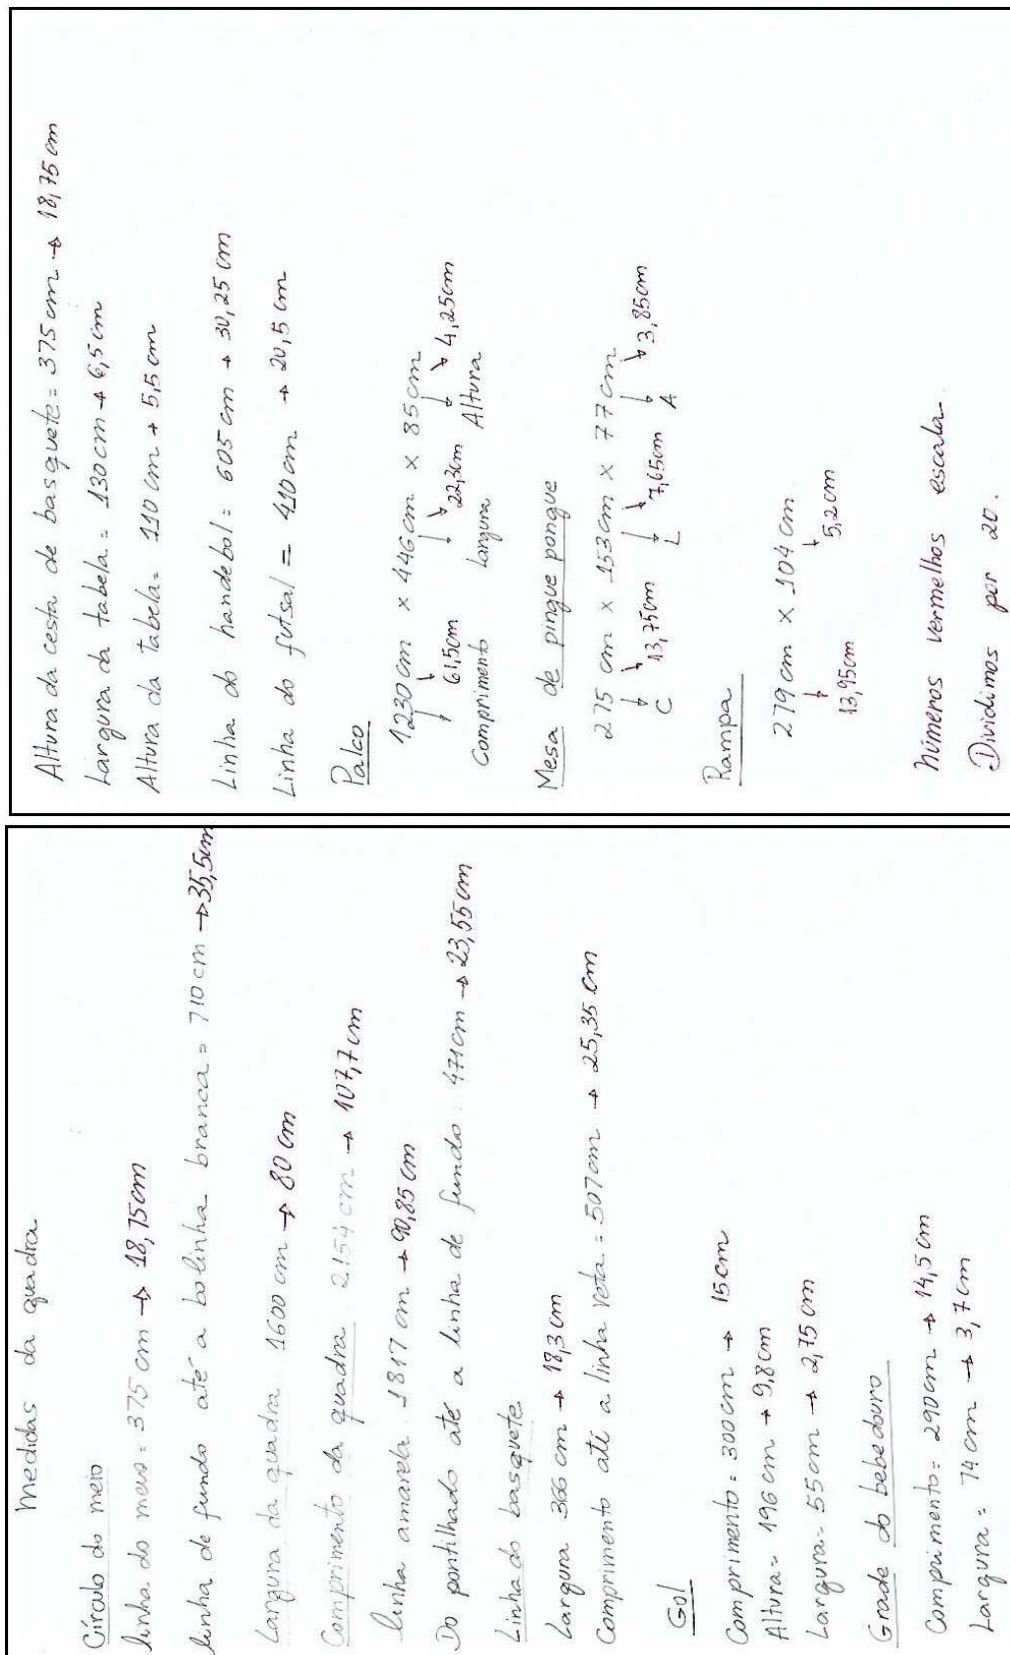 Medidas da quadra
Círculo do meio
linha do meio = 375 cm → 18,75cm
linha de fundo até a bolinha branca = 710 cm → 35,5cm
Largura da quadra 1600 cm → 80 cm
Comprimento da quadra 2154 cm → 107,7 cm
linha amarela 1817 cm → 90,85 cm
Do pontilhado até a linha de fundo: 471cm → 23,55cm
Linha do basquete
Largura 366 cm → 18,3 cm
Comprimento até a linha reta = 507cm → 25,35 cm
Gol
Comprimento = 300cm → 15cm
Altura = 196 cm → 9,8cm
Largura = 55 cm → 2,75 cm
Grade do bebedouro
Comprimento = 290cm → 14,5 cm
Largura = 74 cm → 3,7 cm
Altura da cesta de basquete = 375 cm → 18,75 cm
Largura da tabela = 130cm → 6,5cm
Altura da tabela = 110 cm → 5,5 cm
Linha do handebol = 605 cm → 30,25 cm
Linha do futsal = 410 cm → 20,5 cm
Palco
1230 cm × 446 cm × 85 cm
↓ ↓ ↓ ↘ ↓ ↘
61,5cm 22,3cm 4,25cm
Comprimento Largura Altura
Mesa de pingue pongue
275 cm × 153 cm × 77 cm
↓ ↘ ↓ ↘ ↓ ↘
C 13,75cm L 7,65cm A 3,85cm
Rampa
279 cm × 104 cm
↓ ↓
13,95cm 5,2 cm
Números vermelhos escala
Dividimos por 20.